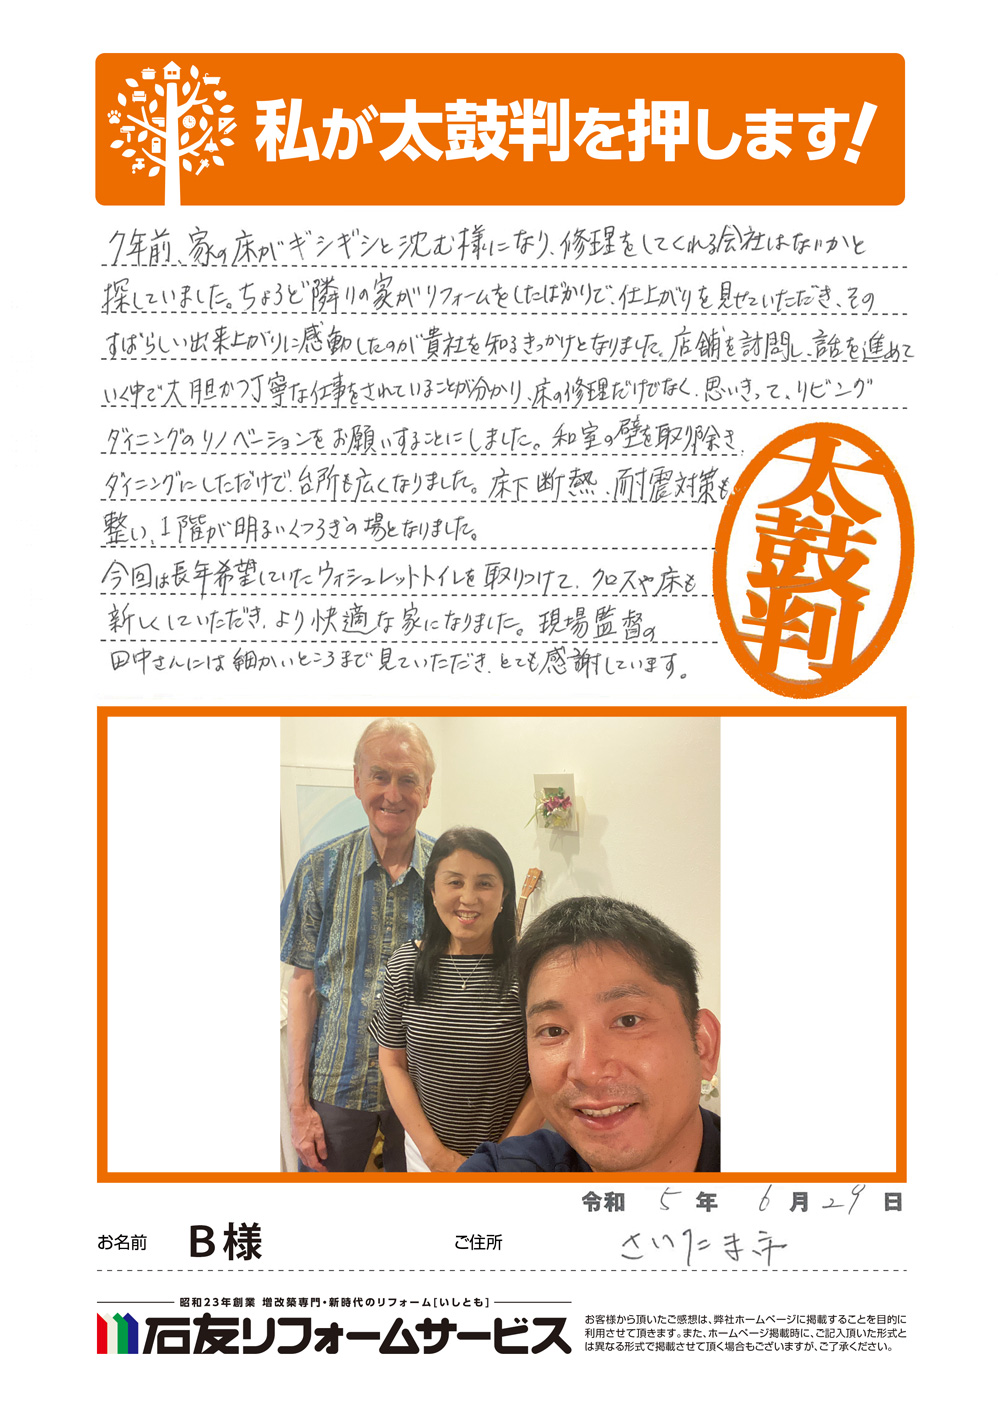 私が太鼓判を押します!
7年前、家の床がギシギシと沈む様になり、修理をしてくれる会社はないかと
探していました。ちょうど隣りの家がリフォームをしたばかりで、仕上がりを見せていただき、その
すばらしい出来上がりに感動したのが貴社を知るきっかけとなりました。店舗を訪問し、話を進めて
いく中で大胆かつ丁寧な仕事をされていることが分かり、床の修理だけでなく、思いきって、リビング
ダイニングのリノベーションをお願いすることにしました。和室の壁を取り除き、
ダイニングにしただけで、台所も広くなりました。床下断熱、耐震対策も
整い、1階が明るいくつろぎの場となりました。
今回は長年希望していたウォシュレットトイレを取りつけて、クロスや床も
新しくしていただき、より快適な家になりました。現場監督の
田中さんには細かいところまで見ていただき、とても感謝しています。
太鼓判
令和 5 年 6 月 29 日
お名前 B様 ご住所 さいたま市
昭和23年創業 増改築専門・新時代のリフォーム[いしとも]
石友リフォームサービス
お客様から頂いたご感想は、弊社ホームページに掲載することを目的に
利用させて頂きます。また、ホームページ掲載時に、ご記入頂いた形式と
は異なる形式で掲載させて頂く場合もございますが、ご了承ください。